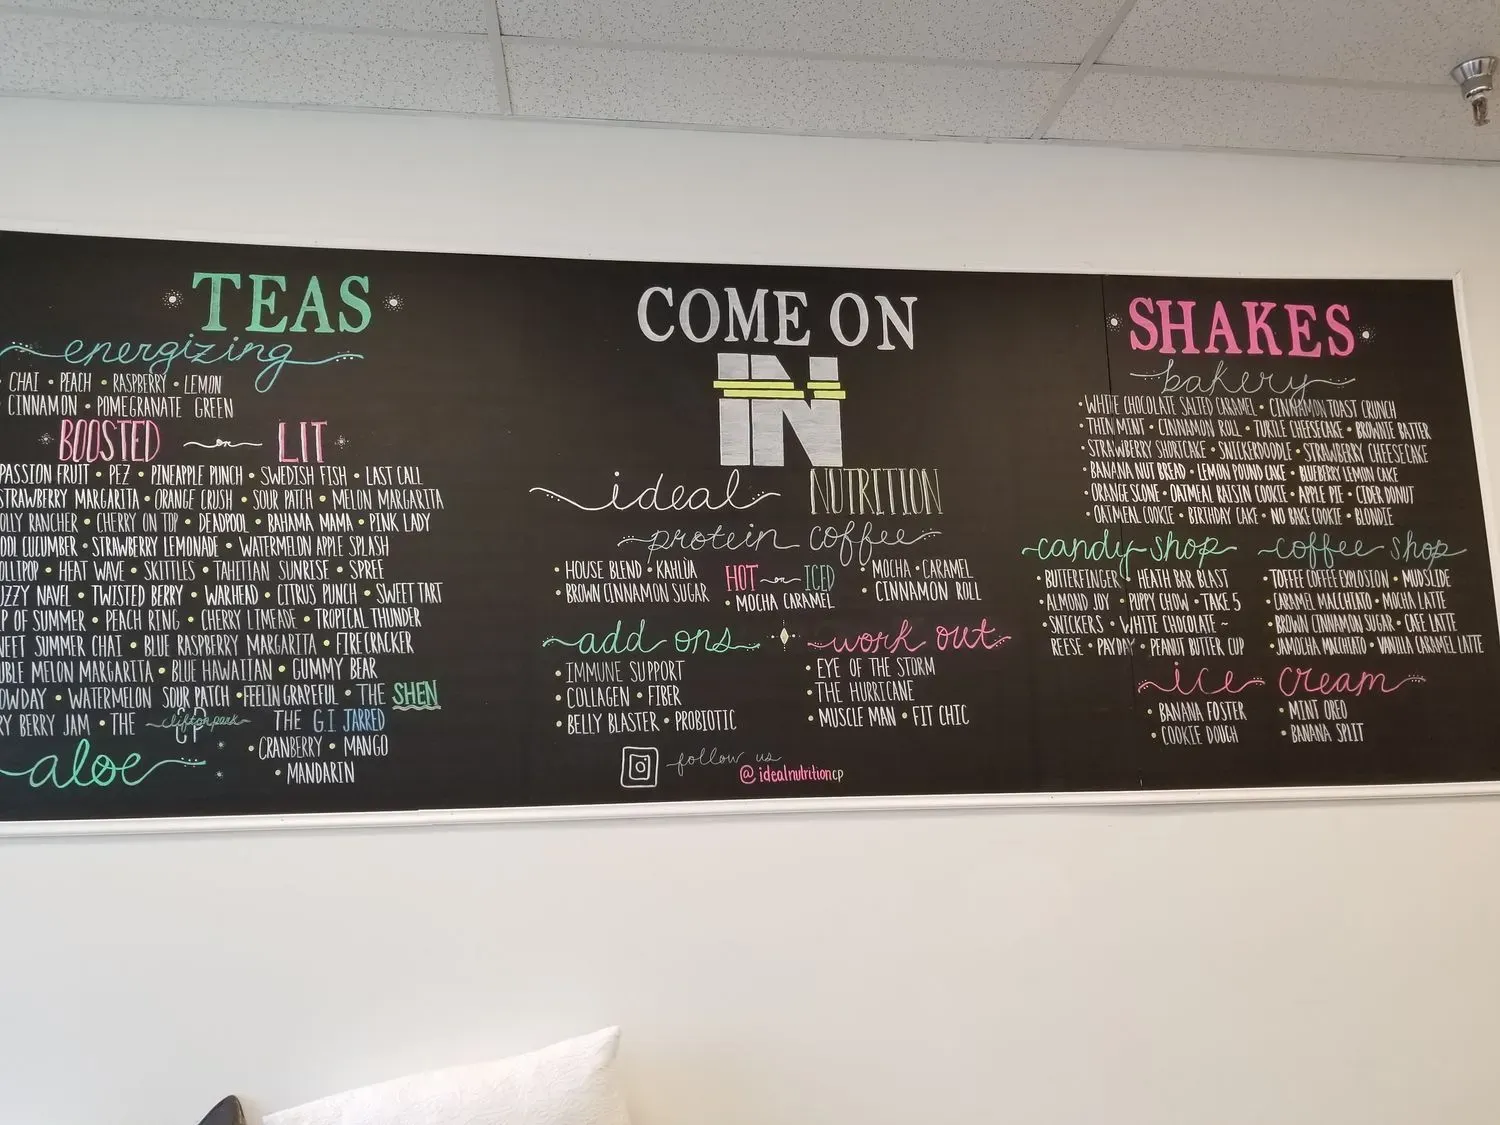 TEAS
energizing
CHAI • PEACH • RASPBERRY • LEMON
CINNAMON • POMEGRANATE GREEN
BOOSTED or LIT
PASSION FRUIT • PEZ • PINEAPPLE PUNCH • SWEDISH FISH • LAST CALL
STRAWBERRY MARGARITA • ORANGE CRUSH • SOUR PATCH • MELON MARGARITA
OLLY RANCHER • CHERRY ON TOP • DEADPOOL • BAHAMA MAMA • PINK LADY
OOL CUCUMBER • STRAWBERRY LEMONADE • WATERMELON APPLE SPLASH
OLLIPOP • HEAT WAVE • SKITTLES • TAHITIAN SUNRISE • SPREE
UZZY NAVEL • TWISTED BERRY • WARHEAD • CITRUS PUNCH • SWEET TART
P OF SUMMER • PEACH RING • CHERRY LIMEADE • TROPICAL THUNDER
WEET SUMMER CHAI • BLUE RASPBERRY MARGARITA • FIRECRACKER
UBLE MELON MARGARITA • BLUE HAWAIIAN • GUMMY BEAR
OWDAY • WATERMELON SOUR PATCH • FEELIN GRAPEFUL • THE SHEN
RY BERRY JAM • THE clifton park CP THE G.I. JARRED
aloe
CRANBERRY • MANGO
• MANDARIN
COME ON
IN
ideal NUTRITION
protein coffee
• HOUSE BLEND • KAHLUA
• BROWN CINNAMON SUGAR
HOT or ICED
• MOCHA CARAMEL
• MOCHA • CARAMEL
• CINNAMON ROLL
add ons
• IMMUNE SUPPORT
• COLLAGEN • FIBER
• BELLY BLASTER • PROBIOTIC
work out
• EYE OF THE STORM
• THE HURRICANE
• MUSCLE MAN • FIT CHIC
follow us
@idealnutritioncp
SHAKES
bakery
• WHITE CHOCOLATE SALTED CARAMEL • CINNAMON TOAST CRUNCH
• THIN MINT • CINNAMON ROLL • TURTLE CHEESECAKE • BROWNIE BATTER
• STRAWBERRY SHORTCAKE • SNICKERDOODLE • STRAWBERRY CHEESECAKE
• BANANA NUT BREAD • LEMON POUND CAKE • BLUEBERRY LEMON CAKE
• ORANGE SCONE • OATMEAL RAISIN COOKIE • APPLE PIE • CIDER DONUT
• OATMEAL COOKIE • BIRTHDAY CAKE • NO BAKE COOKIE • BLONDIE
candy shop
• BUTTERFINGER • HEATH BAR BLAST
• ALMOND JOY • PUPPY CHOW • TAKE 5
• SNICKERS • WHITE CHOCOLATE ~
REESE • PAYDAY • PEANUT BUTTER CUP
coffee shop
• TOFFEE COFFEE EXPLOSION • MUDSLIDE
• CARAMEL MACCHIATO • MOCHA LATTE
• BROWN CINNAMON SUGAR • CAFE LATTE
• JAMOCHA MACCHIATO • VANILLA CARAMEL LATTE
ice cream
• BANANA FOSTER
• COOKIE DOUGH
• MINT OREO
• BANANA SPLIT